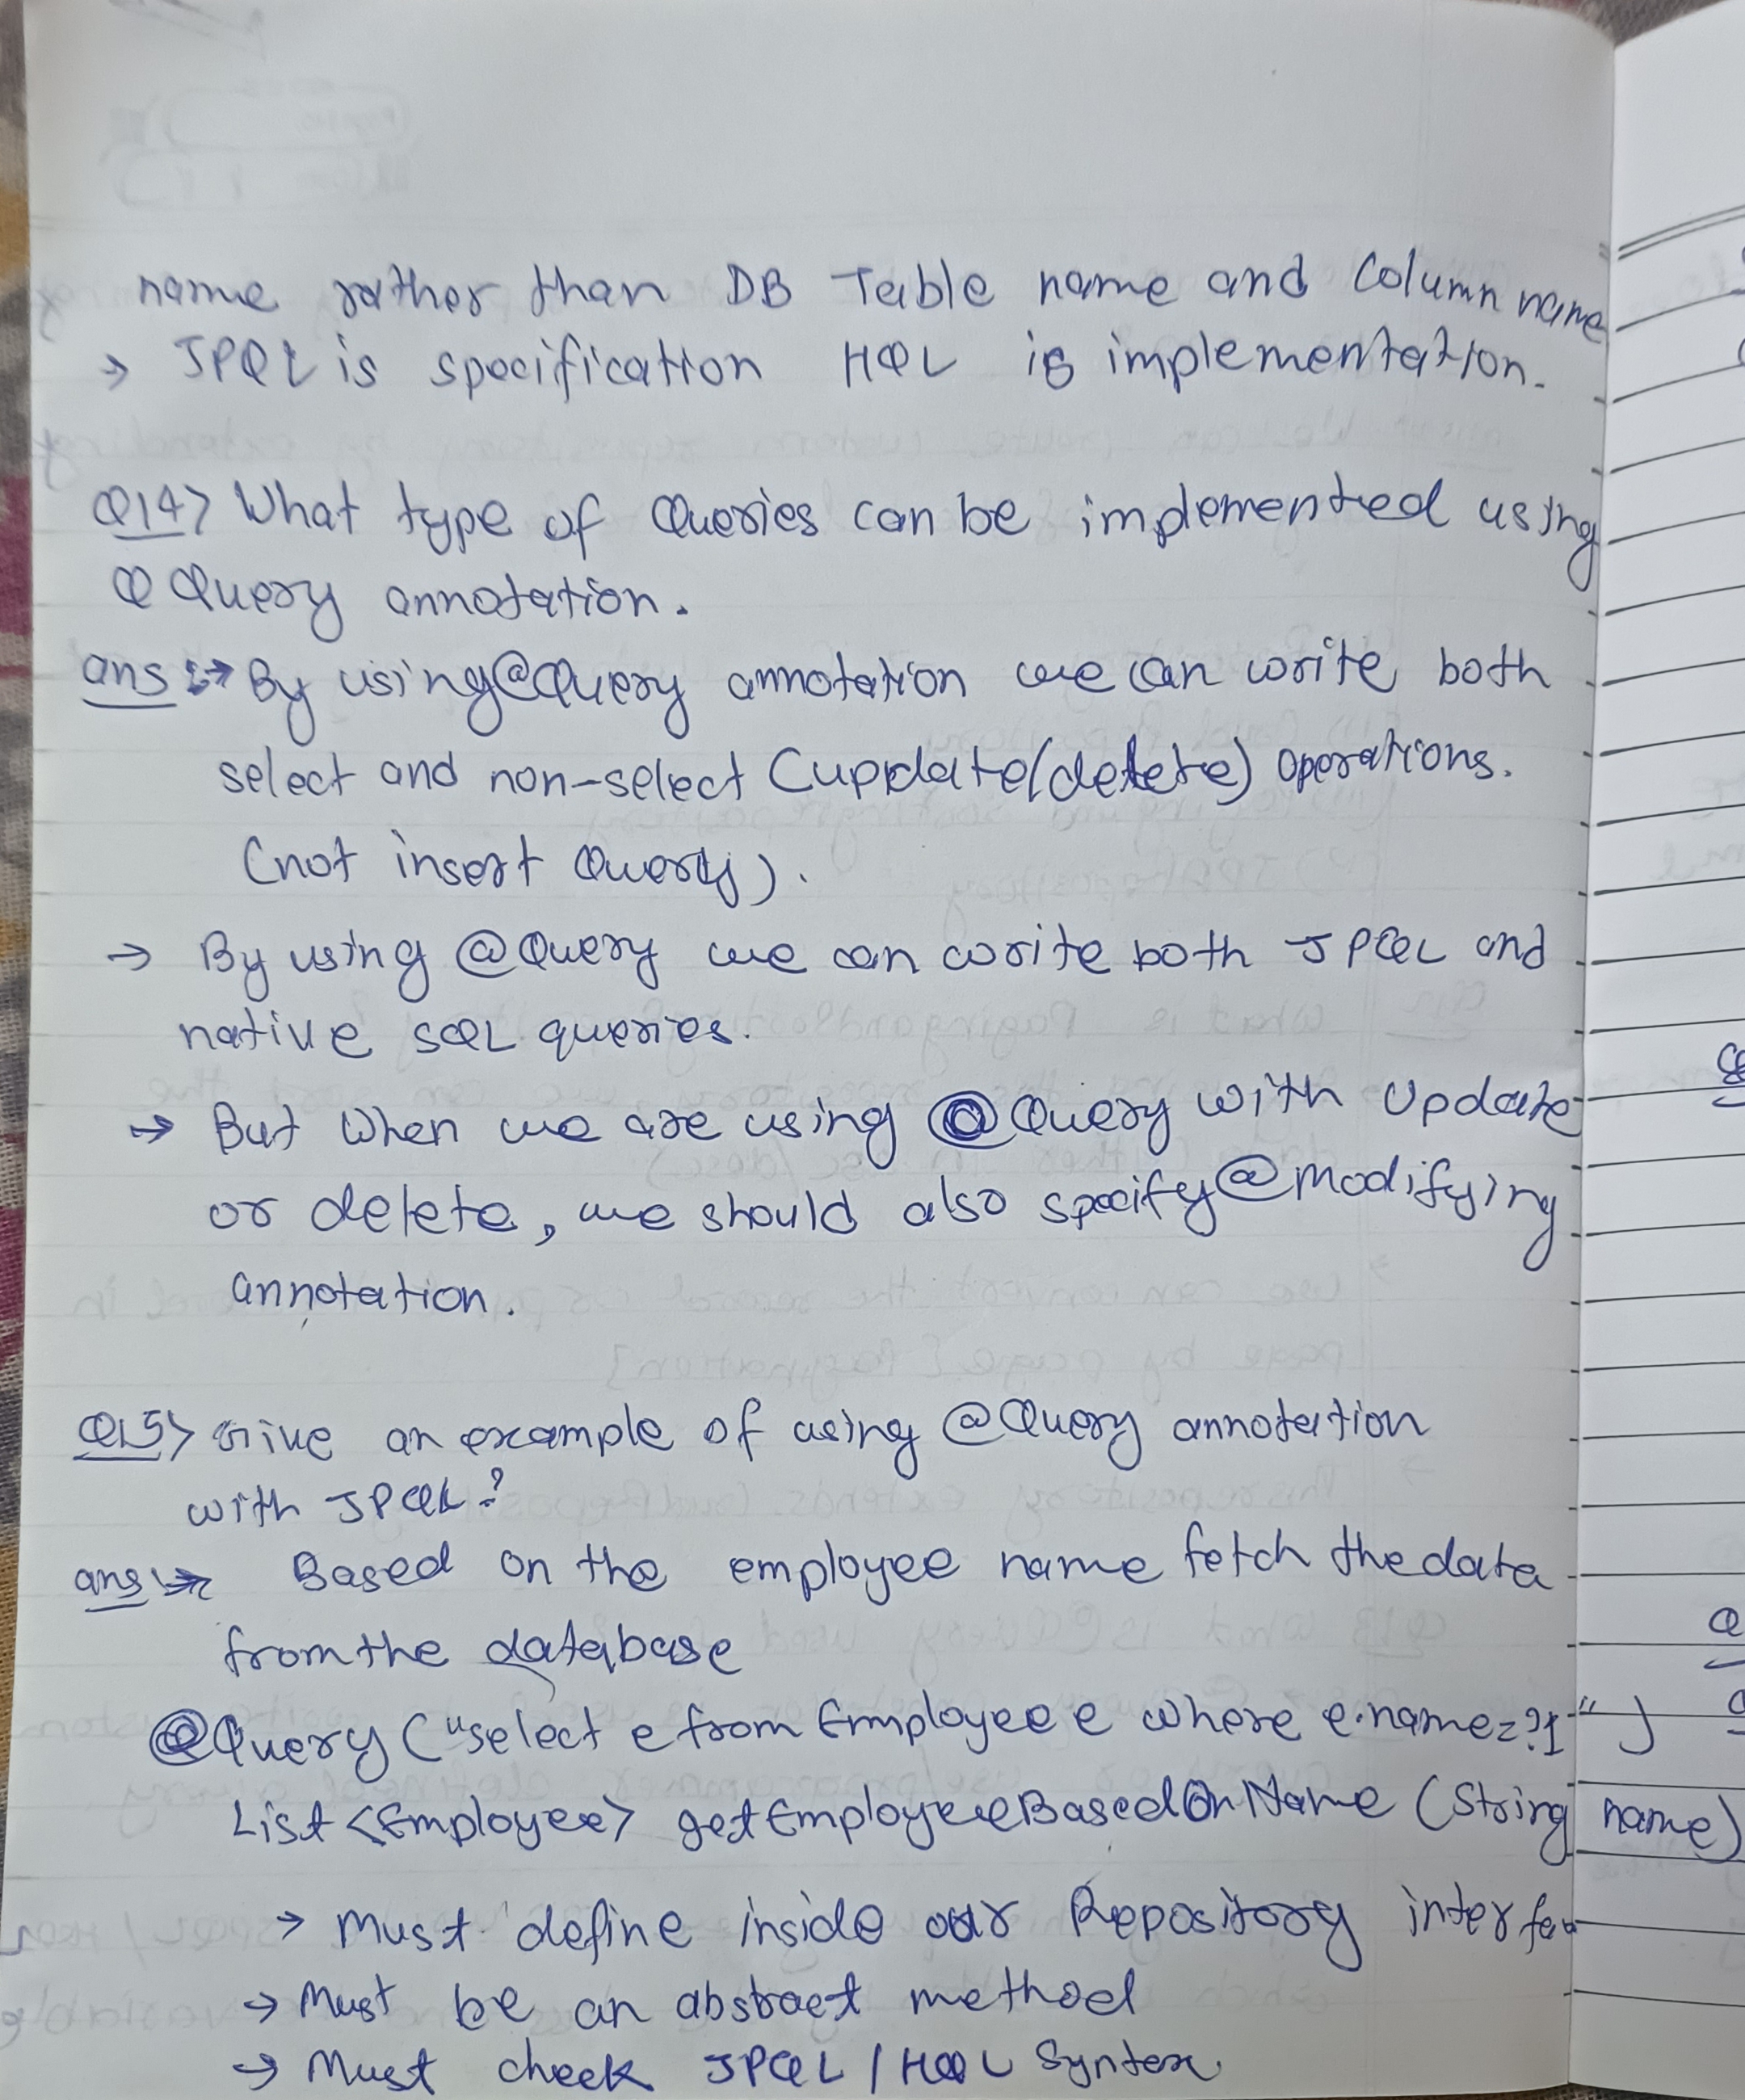 name rather than DB Table name and Column name
→ JPQL is specification HQL is implementation.
Q14> What type of Queries can be implemented using
@ Query annotation.
ans :→ By using @Query annotation we can write both
select and non-select (update/delete) operations.
(not insert Query).
→ By using @Query we can write both JPQL and
native SQL queries.
→ But When we are using @Query with Update
or delete, we should also specify @modifying
annotation.
Q15> Give an example of using @Query annotation
with JPQL?
ans:→ Based on the employee name fetch the data
from the database
@Query ("select e from Employee e where e.name=?1")
List<Employee> getEmployeeBasedOnName (String name)
→ Must define inside our Repository interfa
→ Must be an abstract method
→ Must check JPQL / HQL Syntax